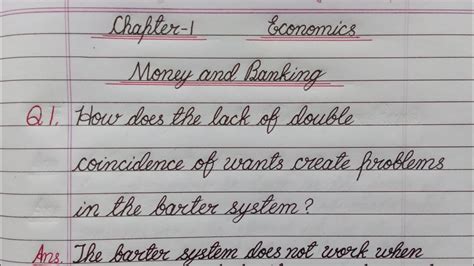 Chapter-1 Economics
Money and Banking
Q1. How does the lack of double
coincidence of wants create problems
in the barter system?
Ans. The barter system does not work when